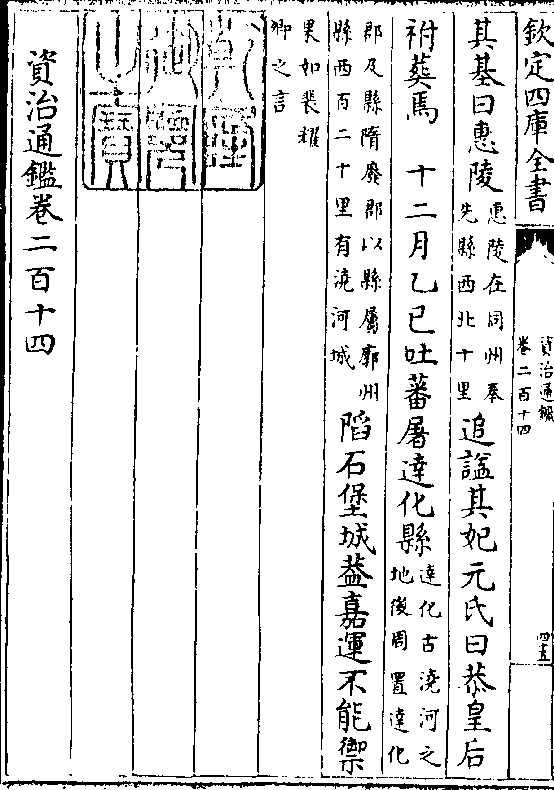 欽定四庫全書
資治通鑑
卷二百十四
四五
其墓曰惠陵
惠陵在同州奉
先縣西北十里
追謚其妃元氏曰恭皇后
祔葬焉 十二月乙巳吐蕃屠達化縣
達化古澆河之
地後周置達化
郡及縣隋廢郡以縣屬廓州
縣西百二十里有澆河城
陷石堡城葢嘉運不能禦
果如裴耀
卿之言
乾隆
御覽
之寶
資治通鑑卷二百十四